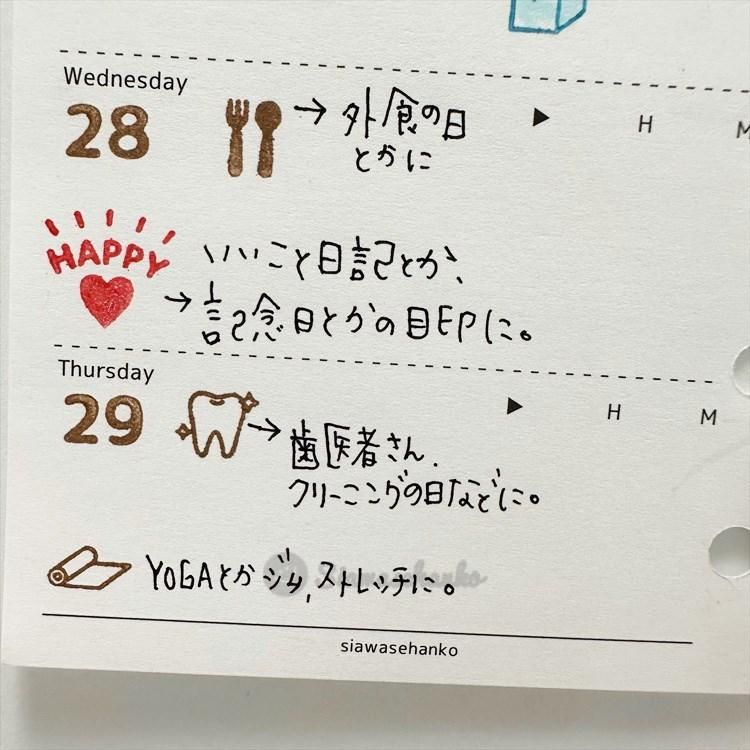 Wednesday
28 → 外食の日 ▶ H M
とかに
HAPPY いいこと日記とか、
→ 記念日とかの目印に。
Thursday
29 → ▶ H M
歯医者さん、
クリーニングの日などに。
YOGAとかジム,ストレッチに。
Siawasehanko
siawasehanko